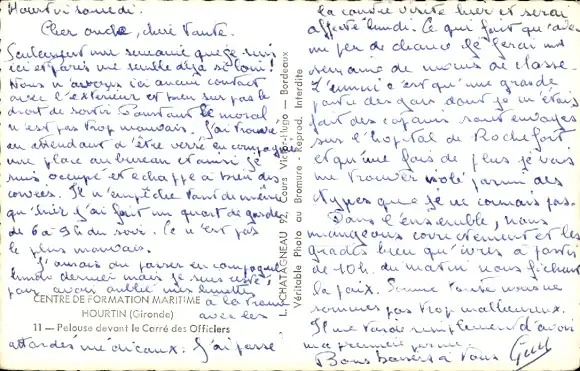 Hourtin samedi.
Cher oncle, chère tante.
Seulement une semaine que je suis
ici et Paris me semble déjà si loin!
Nous n'avons ici aucun contact
avec l'extérieur et bien sur pas le
droit de sortir. Pourtant le moral
n'est pas trop mauvais. J'ai trouvé
en attendant d'être versé en compagnie
une place au bureau et ainsi je
suis occupé et échappe à bien des
corvées. Il n'empêche tant de même
qu'hier j'ai fait un quart de garde
de 6 à 9h du soir. Ce n'est pas
le plus mauvais.
J'aurais du passer en compagnie
lundi dernier mais je suis resté
pour avoir oublié mes lunettes
à la
avec les
CENTRE DE FORMATION MARITIME
HOURTIN (Gironde)
11 — Pelouse devant le Carré des Officiers
attardés médicaux. J'ai passé
L. CHATAGNEAU 92, Cours Victor-Hugo — Bordeaux
Véritable Photo au Bromure - Reprod. Interdite
la visite hier et serai
affecté lundi. Ce qui fait qu'avec
un peu de chance je ferai une
semaine de moins de classe.
L'ennui c'est qu'une grande
partie des gars dont je m'étais
fait des copains sont envoyés
sur l'hopital de Rochefort
et qu'une fois de plus je vais
me trouver isolé parmi des
types que je ne connais pas.
Dans l'ensemble, nous
mangeons correctement et les
gradés bien qu'ivres à partir
de 10h. du matin nous fichent
la paix. Somme toute nous ne
sommes pas trop malheureux.
Il me tarde simplement d'avoir
ma première perme.
Bons baisers à vous Guy